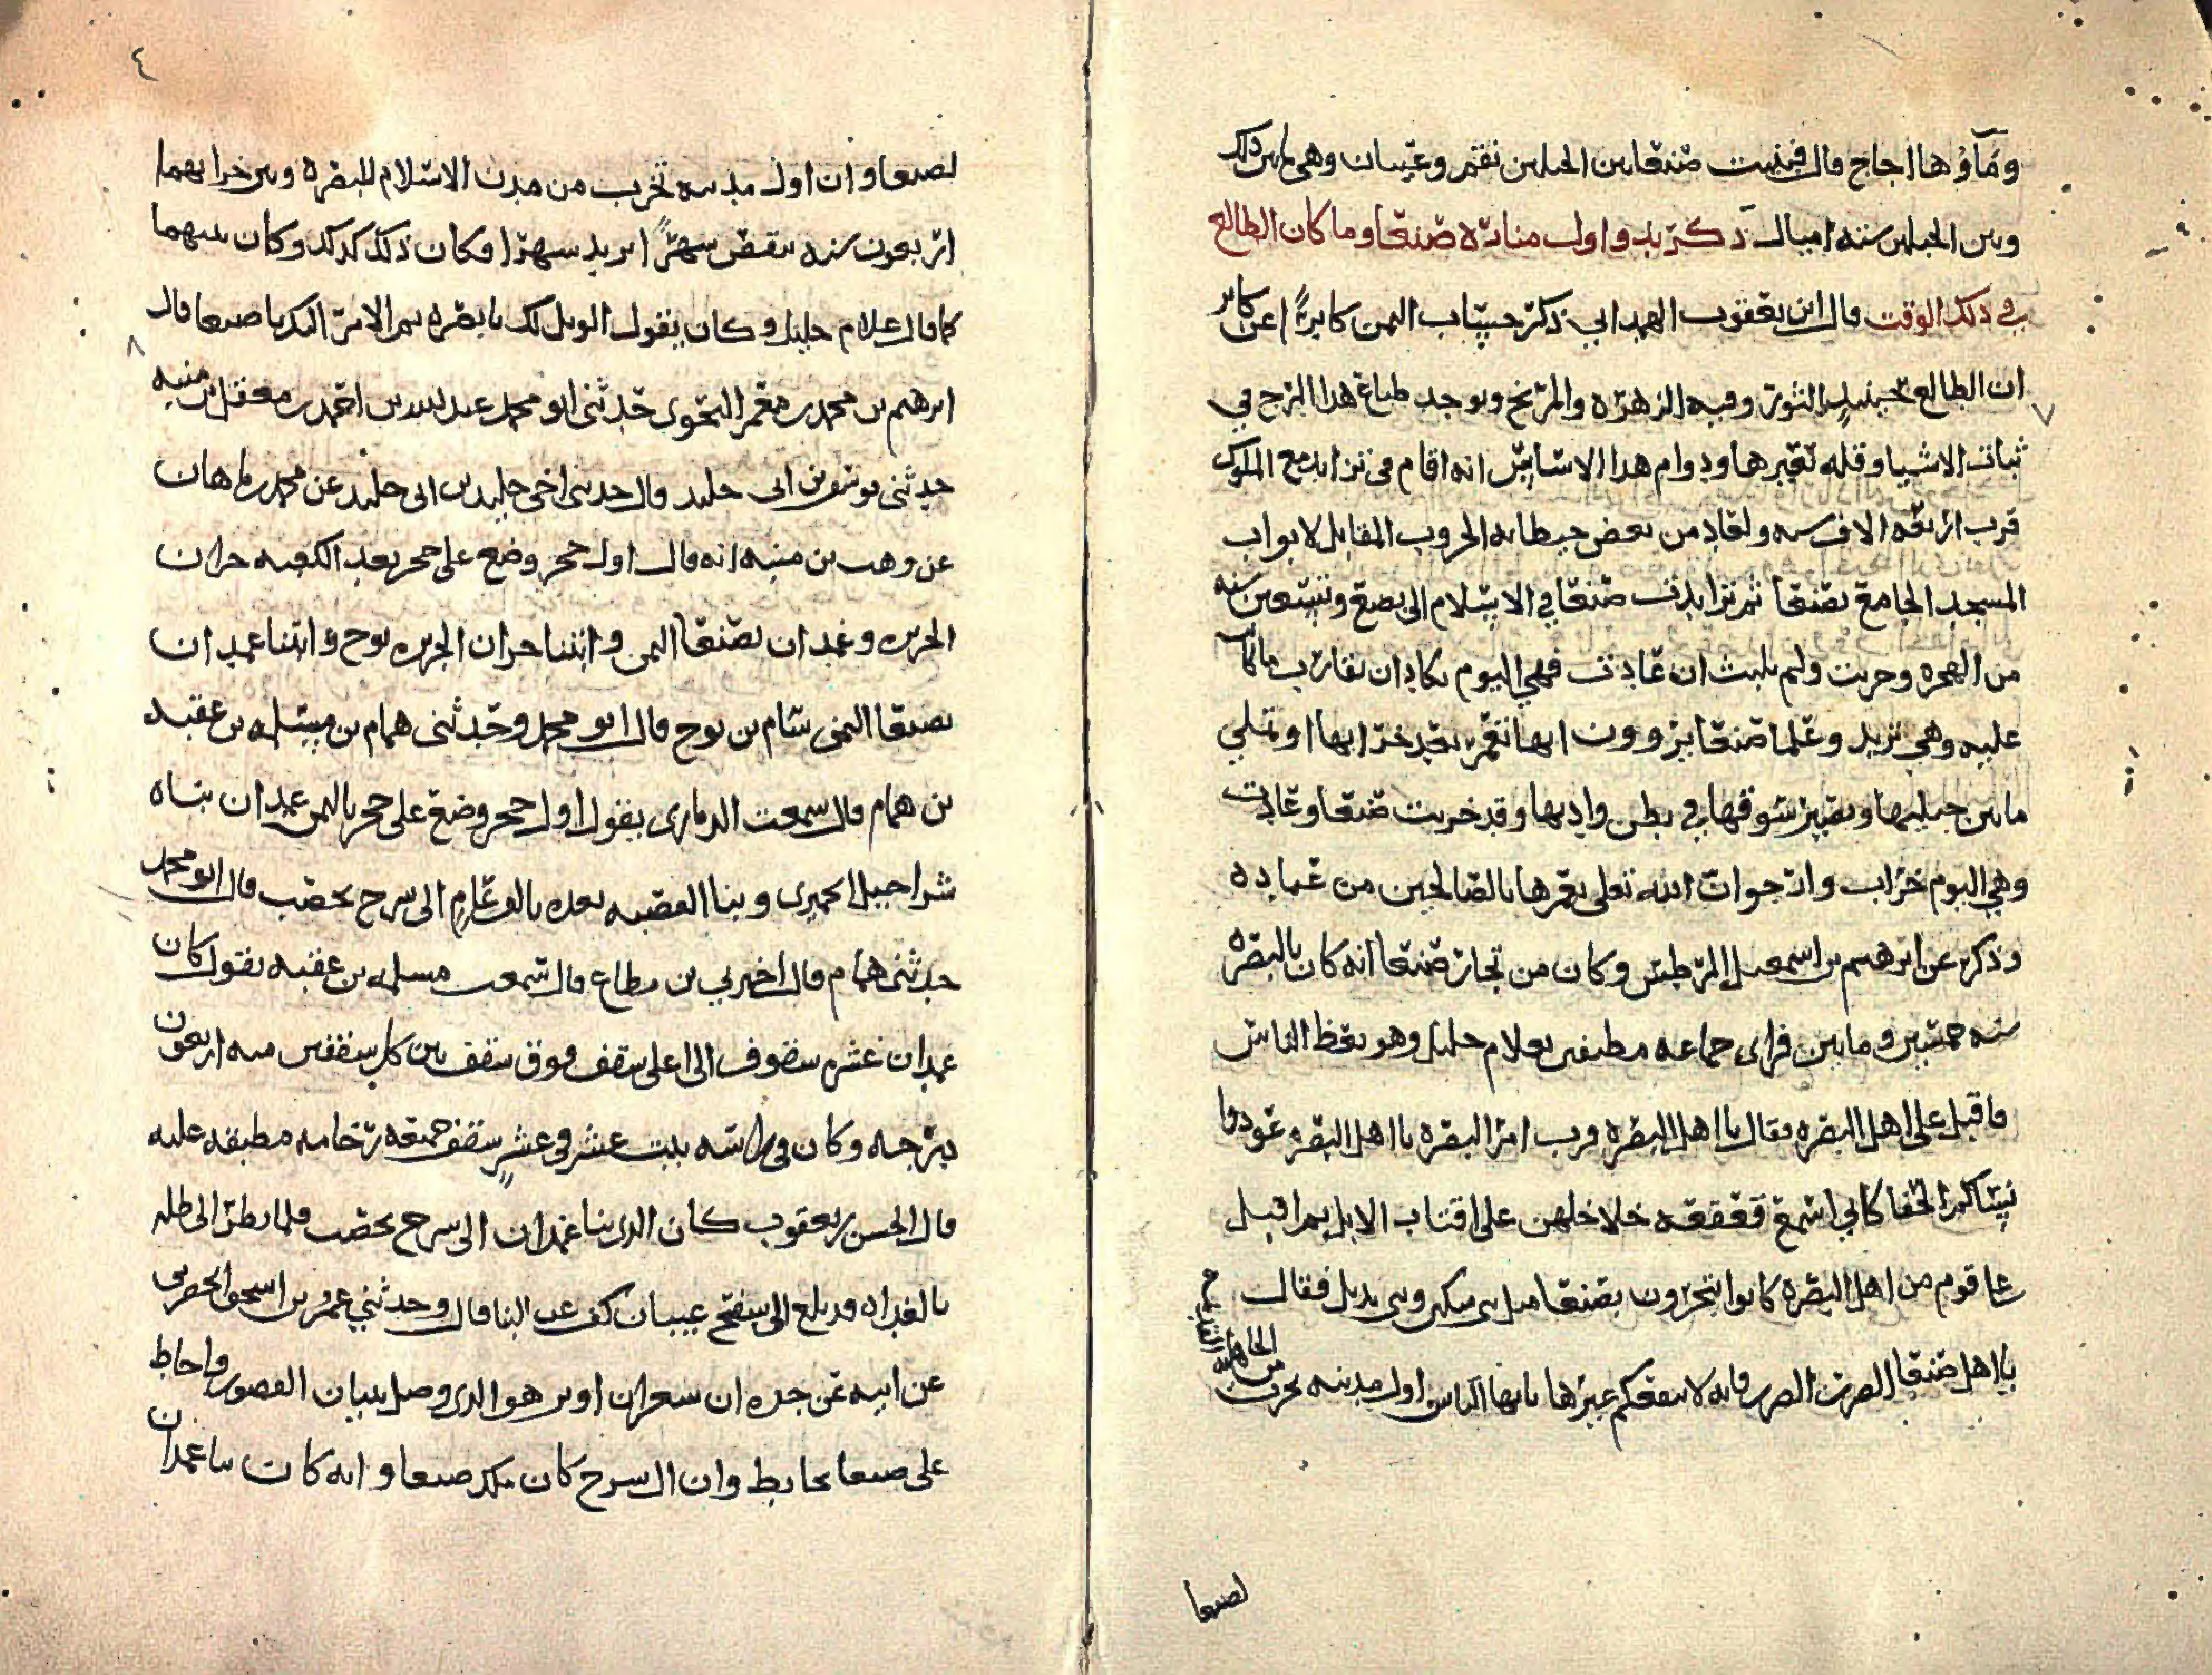 وماؤها اجاج قال فبنيت صنعا بين الجبلين نقم وعيبان وهي ما بين ذلك
وبين الجبلين ستة اميال ذكر بدو اول منارة صنعا وما كان الطالع
في ذلك الوقت قال ابن يعقوب الهمداني ذكر حساب اليمن كابرًا عن كابر
ان الطالع حينئذ الثور وفيه الزهره والمريخ ويوجد طباع هذا البرج في
ثبات الاشيا وقله تغيرها ودوام هذا الاساس انه اقام في تزايد مع الملوك
قرب اربعه الاف سنه من بعض حيطانه الحروب المقابل لابواب
المسجد الجامع بصنعا ثم تزايدت صنعا في الاسلام الى بضع وتسعين سنه
من الهجره وخربت ولم يلبث ان عادت فهي اليوم تكاد ان تقارب ما كانت
عليه وهي تزيد وعلما صنعا يروون انها تعمر بعد خرابها او تملي
ما بين جبليها ويصير سوقها في بطن واديها وقد خربت صنعا وعادت
وهي اليوم خراب وارجوا ان الله تعلى يعمرها بالصالحين من عباده
وذكر عن ابرهيم بن اسمعيل وكان من تجار صنعا انه كان بالبصره
سنه خمسين ومايين فراى جماعه مطيفين بغلام جليل وهو يعظ الناس
فاقبل على اهل البصره فقال يا اهل البصره قرب امر البصره يا اهل البصره عودوا
نساكم الحفا كاني اسمع قعقعه خلاخلهن على اقتاب الابل ثم اقبل
على قوم من اهل البصره كانوا يتجرون بصنعا فقال
يا اهل صنعا الصرر الصرر فانه لا ينفعكم غيرها يا ايها الناس اول مدينه خربت
من
الجاهليه
لصنعا
٤
لصنعا وان اول مدينه تخرب من مدن الاسلام للبصره وبين خرابهما
اربعون سنه ينقص شهرًا او يزيد شهرا فكان ذلك كذلك وكان بينهما
كما قال غلام جليل وكان يقول الويل لك يا بصره ثم الامر اليك يا صنعا قال
ابرهيم بن محمد بن معمر النحوى حدثنى ابو محمد عبد الله بن احمد بن معقل بن منبه
حدثنى يونس بن ابى خليد قال حدثنى اخى خليد بن ابى خليد عن محمد بن ماهان
عن وهب بن منبه انه قال اول حجر وضع على حجر بعد الكعبه حران
الجزيره وغمدان بصنعا اليمن وابتنا حران الجزيره نوح وابتنا غمدان
بصنعا اليمن سام بن نوح قال ابو محمد وحدثنى همام بن مسلمه بن عقبه
بن همام قال سمعت الذمارى يقول اول حجر وضع على حجر باليمن غمدان بناه
شراحيل الحميرى وبنا القصبه بعده بالف عام الى سرح يحضب قال ابو محمد
حدثنى همام قال اخبرني بن مطاع قال سمعت مسلمه بن عقبه يقول كان
غمدان عشره سقوف الى اعلى سقف فوق سقف بين كل سقفين منه اربعون
درجه وكان في راسه بيت عشر في عشر سقف جمعه رخامه مطبقه عليه
قال الحسن بن يعقوب كان الذى بنا غمدان الى سرح يحضب فلما نظر الى ظله
بالغداه قد بلغ الى سفح عيبان كف عن البنا قال وحدثني عمر بن اسحق الحضرمى
عن ابيه عن جده ان اوتر هو الذى وصل بنيان القصور واحاط
على صنعا بحايط وان ال سرح كان ملك صنعا وانه كان بنا غمدان